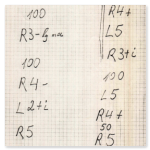 100
R3-
100
R4-
L2+i
R5
R4+
L5
R3+i
100
L5
R4+
50
R5